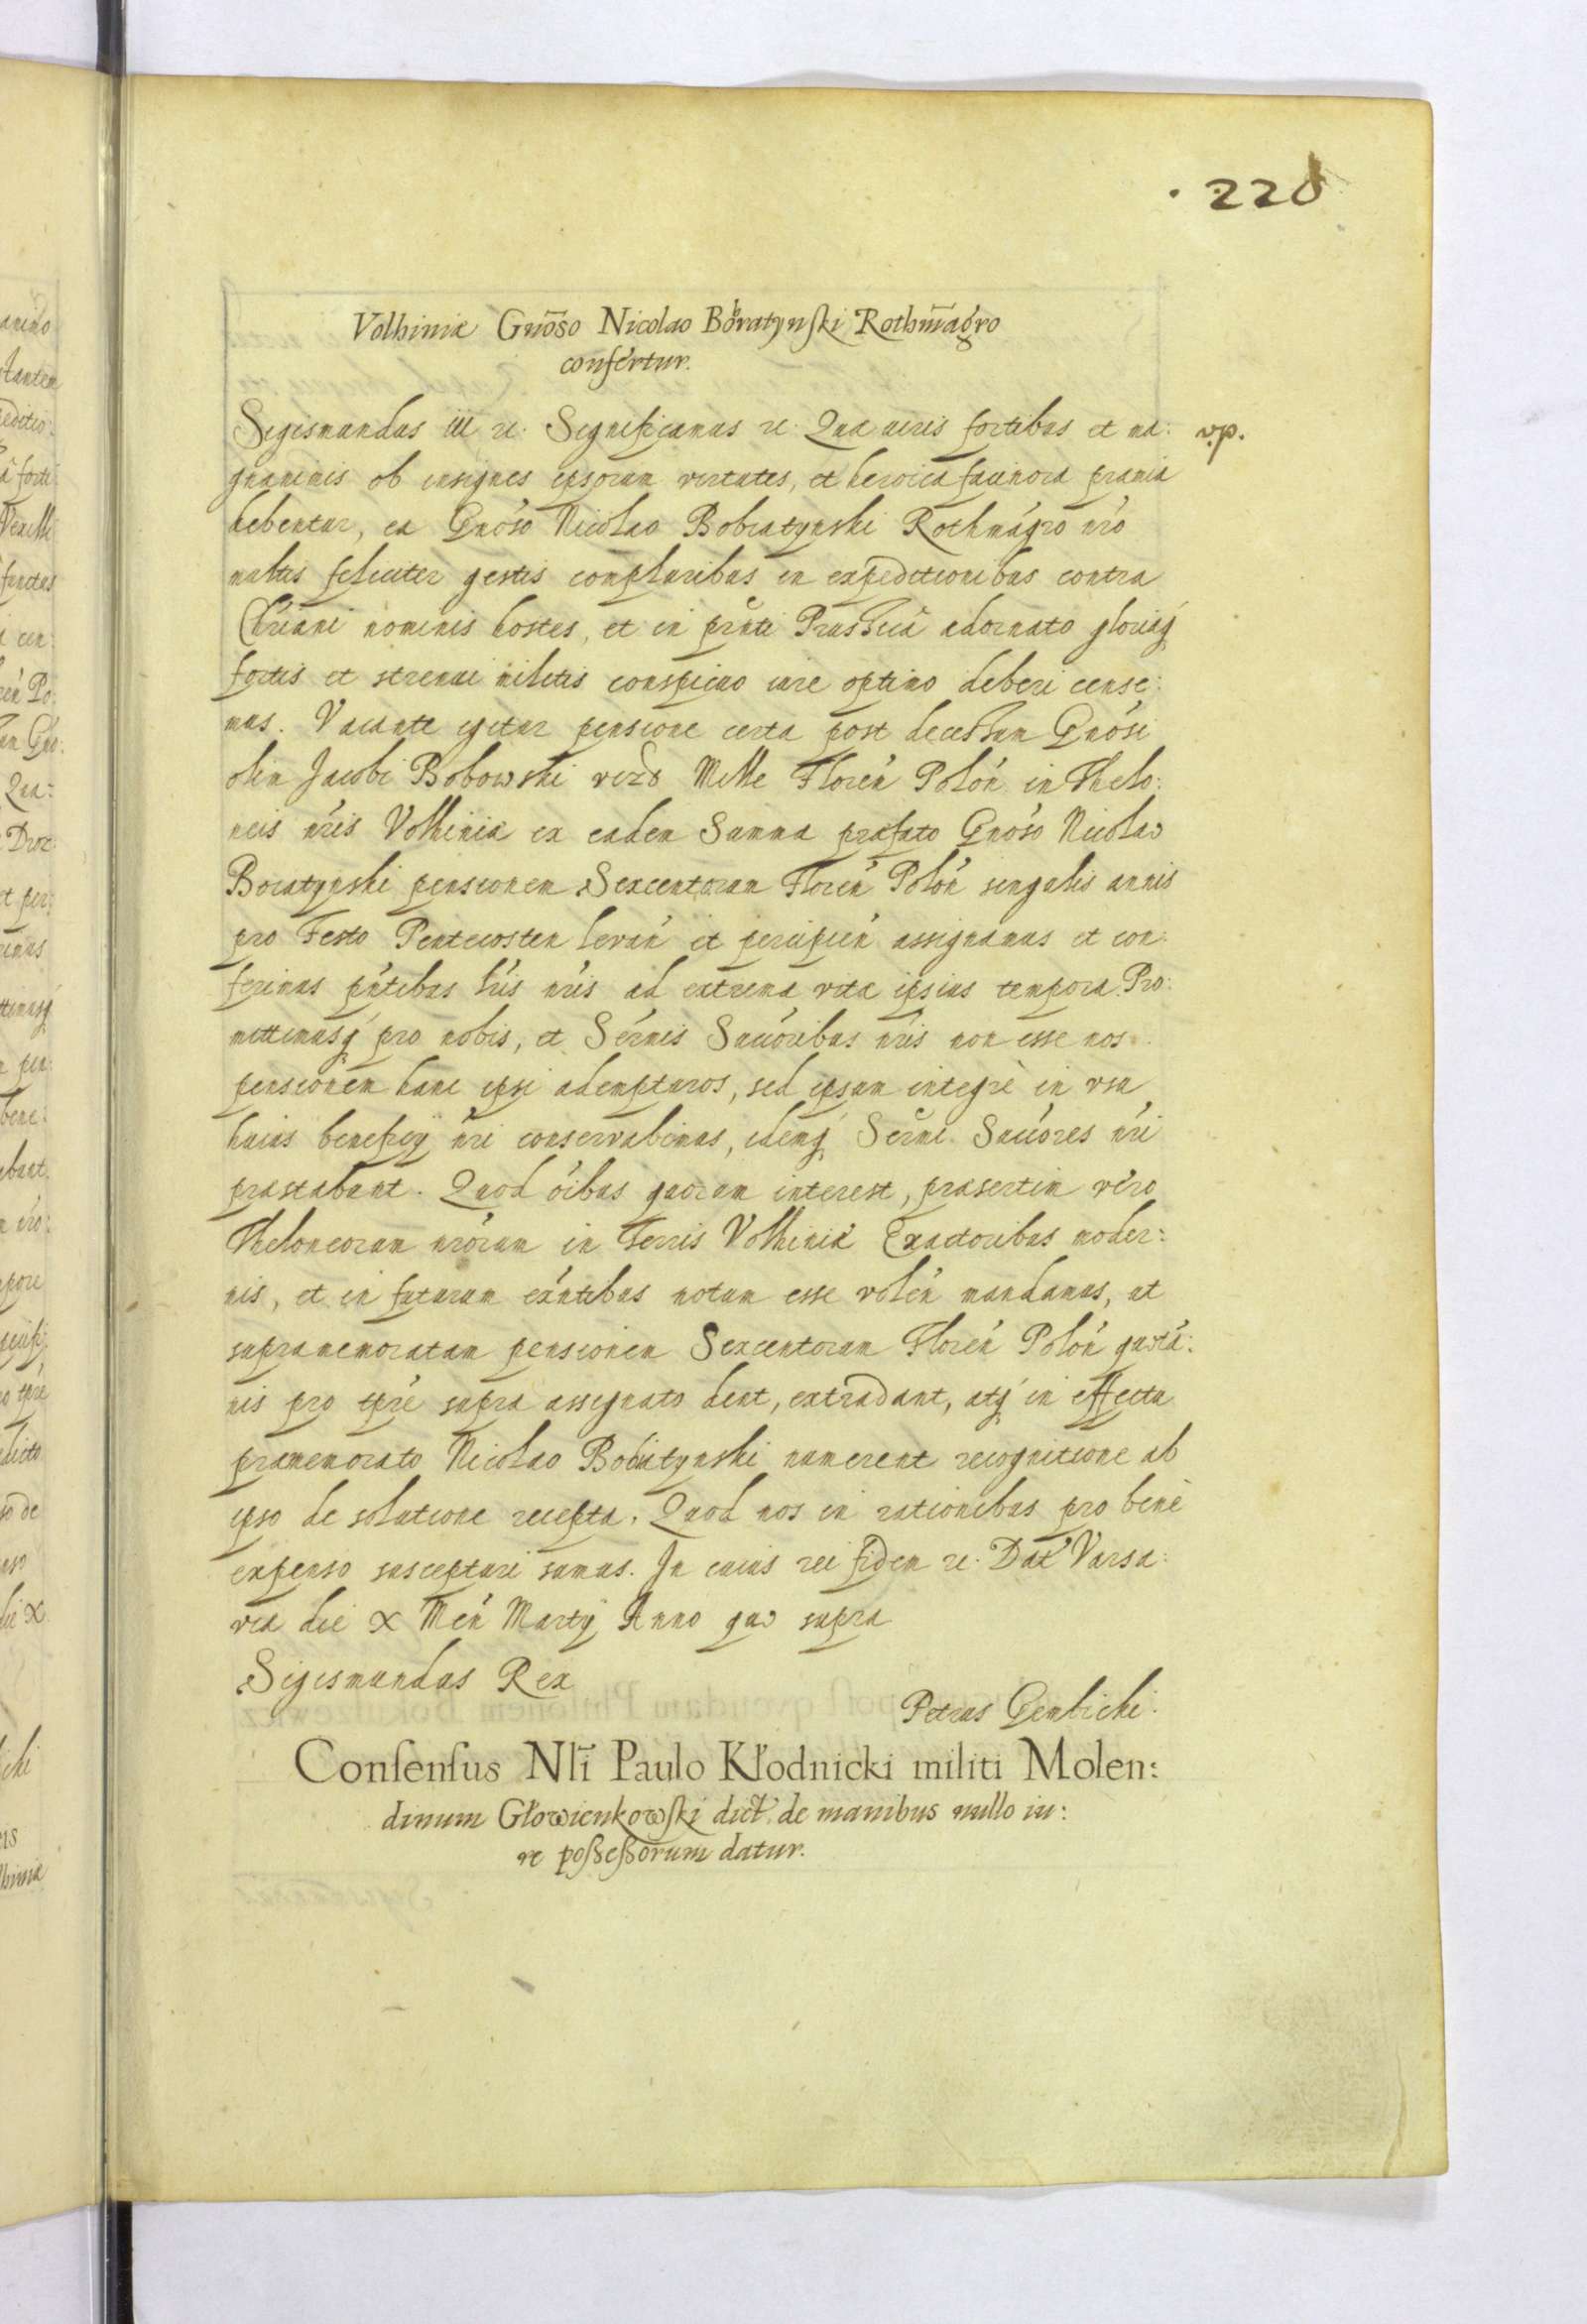 . 228
Volhiniæ Gnōso Nicolao Bobratynſki Rothm̄agro
confertur.
Sigismundus iii rc. Significamus rc. Quæ uiris fortibus et ma: v.p.
gnanimis ob insignes ipsorum virtutes, et heroica facinora præmia
debentur, ea Gnoso Nicolao Bobratynski Rothmagro nro
multis feliciter gestis compluribus in expeditionibus contra
Chriani nominis hostes, et in pnti Prussica adornato gloriaq́
fortis et strenui militis conspicuo iure optimo deberi cense:
mus. Vacante igitur pensione certa post decessum Gnosi
olim Jacobi Bobowski Mille Floren Polon in Thelo:
neis nris Volhiniæ ex eadem Summa præfato Gnoso Nicolao
Boratynski pensionem Sexcentorum Floren Polon singulis annis
pro Festo Pentecosten levan et percipien assignamus et con:
ferimus pntibus lris nris ad extrema vitæ ipsius tempora. Pro:
mittimusq́ pro nobis, et Sermis Succoribus nris non esse nos
pensionem hanc ipsi adempturos, sed ipsum integrè in vsu
huius beneficij nri conservabimus, idemq́ Sermi Succores nri
præstabunt. Quod oibus quorum interest, præsertim vero
Theloneorum nrorum in Terris Volhiniæ Exactoribus moder:
nis, et in futurum exntibus notum esse volen mandamus, ut
supramemoratam pensionem Sexcentorum Floren Polon quota:
nis pro tpre supra assignato dent, extradant, atq́ in effectu
præmemorato Nicolao Boratynski numerent recognitione ab
ipso de solutione recepta. Quod nos in rationibus pro benè
expenso suscepturi sumus. In cuius rei fidem rc. Dat Varsa:
viæ die X Men Martij Anno quo supra
Sigismundus Rex
Petrus Gembicki.
Conſenſus Nli Paulo Kłodnicki militi Molen:
dinum Głowienkowſki dict. de manibus nullo iu:
re poſseſsorum datur.